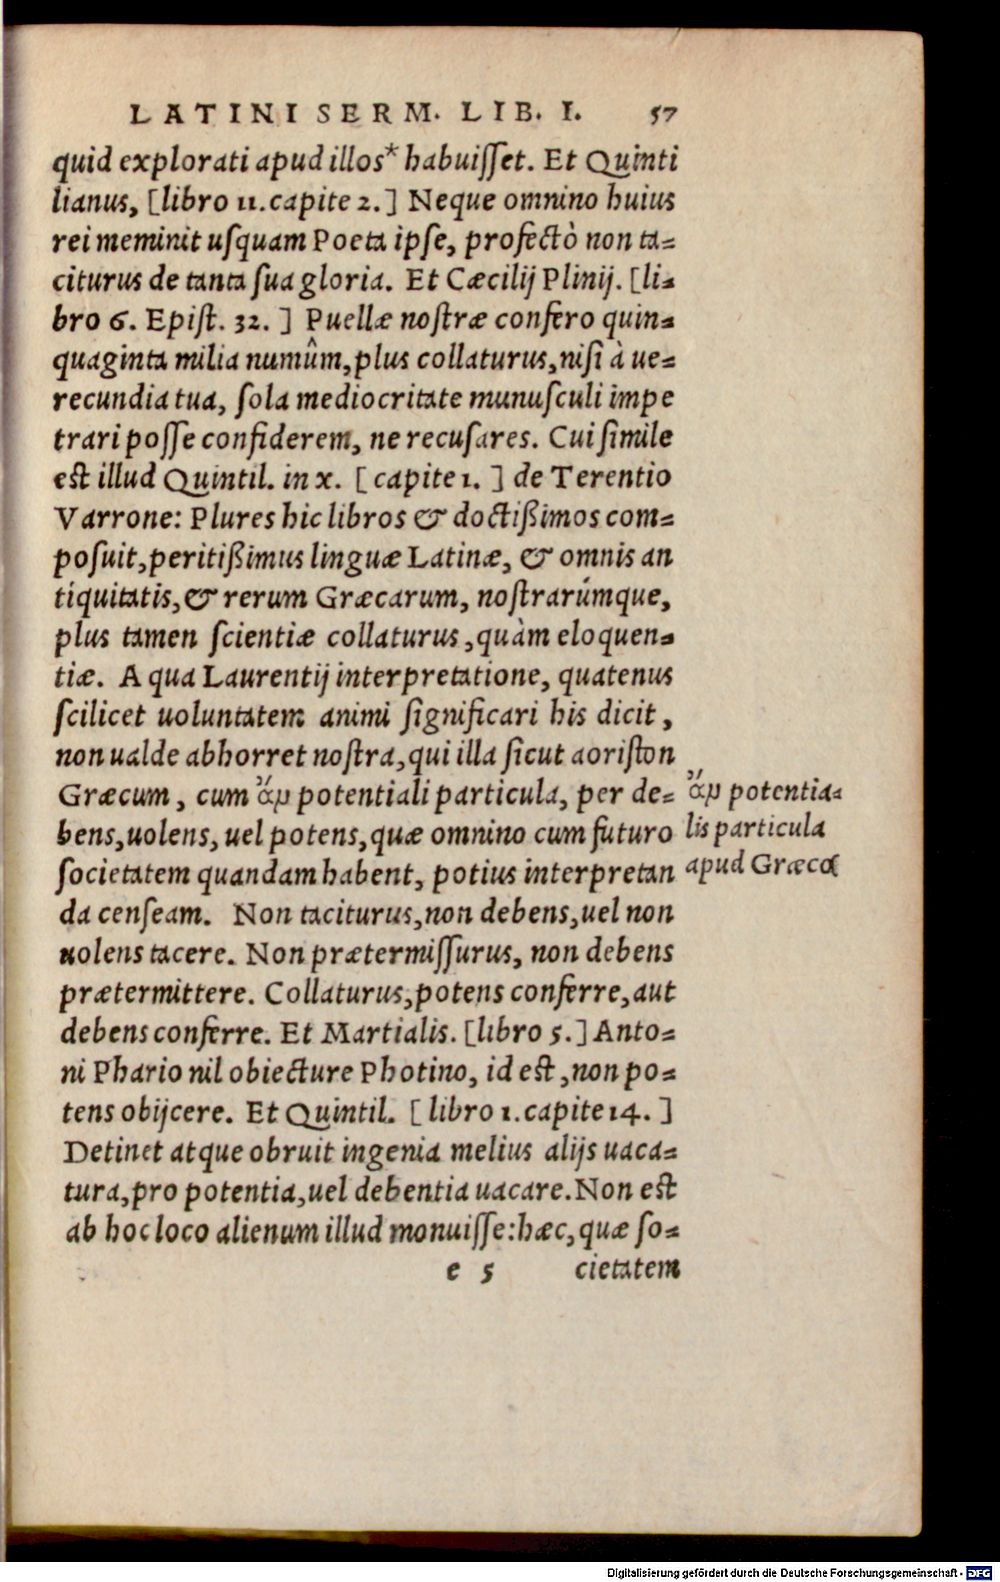 LATINI SERM. LIB. I. 57
quid explorati apud illos* habuiſſet. Et Quinti
lianus, [libro 11.capite 2.] Neque omnino huius
rei meminit uſquam Poeta ipſe, profectò non ta=
citurus de tanta ſua gloria. Et Cæcilij Plinij. [li=
bro 6. Epiſt. 32. ] Puellæ noſtræ confero quin=
quaginta milia numûm, plus collaturus, niſi à ue=
recundia tua, ſola mediocritate munuſculi impe
trari poſſe confiderem, ne recuſares. Cui ſimile
est illud Quintil. in x. [ capite 1. ] de Terentio
Varrone: Plures hic libros & doctißimos com=
poſuit, peritißimus linguæ Latinæ, & omnis an
tiquitatis, & rerum Græcarum, noſtrarúmque,
plus tamen ſcientiæ collaturus, quàm eloquen=
tiæ. A qua Laurentij interpretatione, quatenus
ſcilicet uoluntatem animi ſignificari his dicit,
non ualde abhorret noſtra, qui illa ſicut aoriſton
Græcum, cum ἂμ potentiali particula, per de=
bens, uolens, uel potens, quæ omnino cum futuro
ſocietatem quandam habent, potius interpretan
da cenſeam. Non taciturus, non debens, uel non
uolens tacere. Non prætermiſſurus, non debens
prætermittere. Collaturus, potens conferre, aut
debens conferre. Et Martialis. [libro 5.] Anto=
ni Phario nil obiecture Photino, id est, non po=
tens obijcere. Et Quintil. [ libro 1.capite 14. ]
Detinet atque obruit ingenia melius alijs uaca=
tura, pro potentia, uel debentia uacare. Non est
ab hoc loco alienum illud monuiſſe: hæc, quæ ſo=
e 5 cietatem
ἂμ potentia=
lis particula
apud Græcos
Digitalisierung gefördert durch die Deutsche Forschungsgemeinschaft - DFG